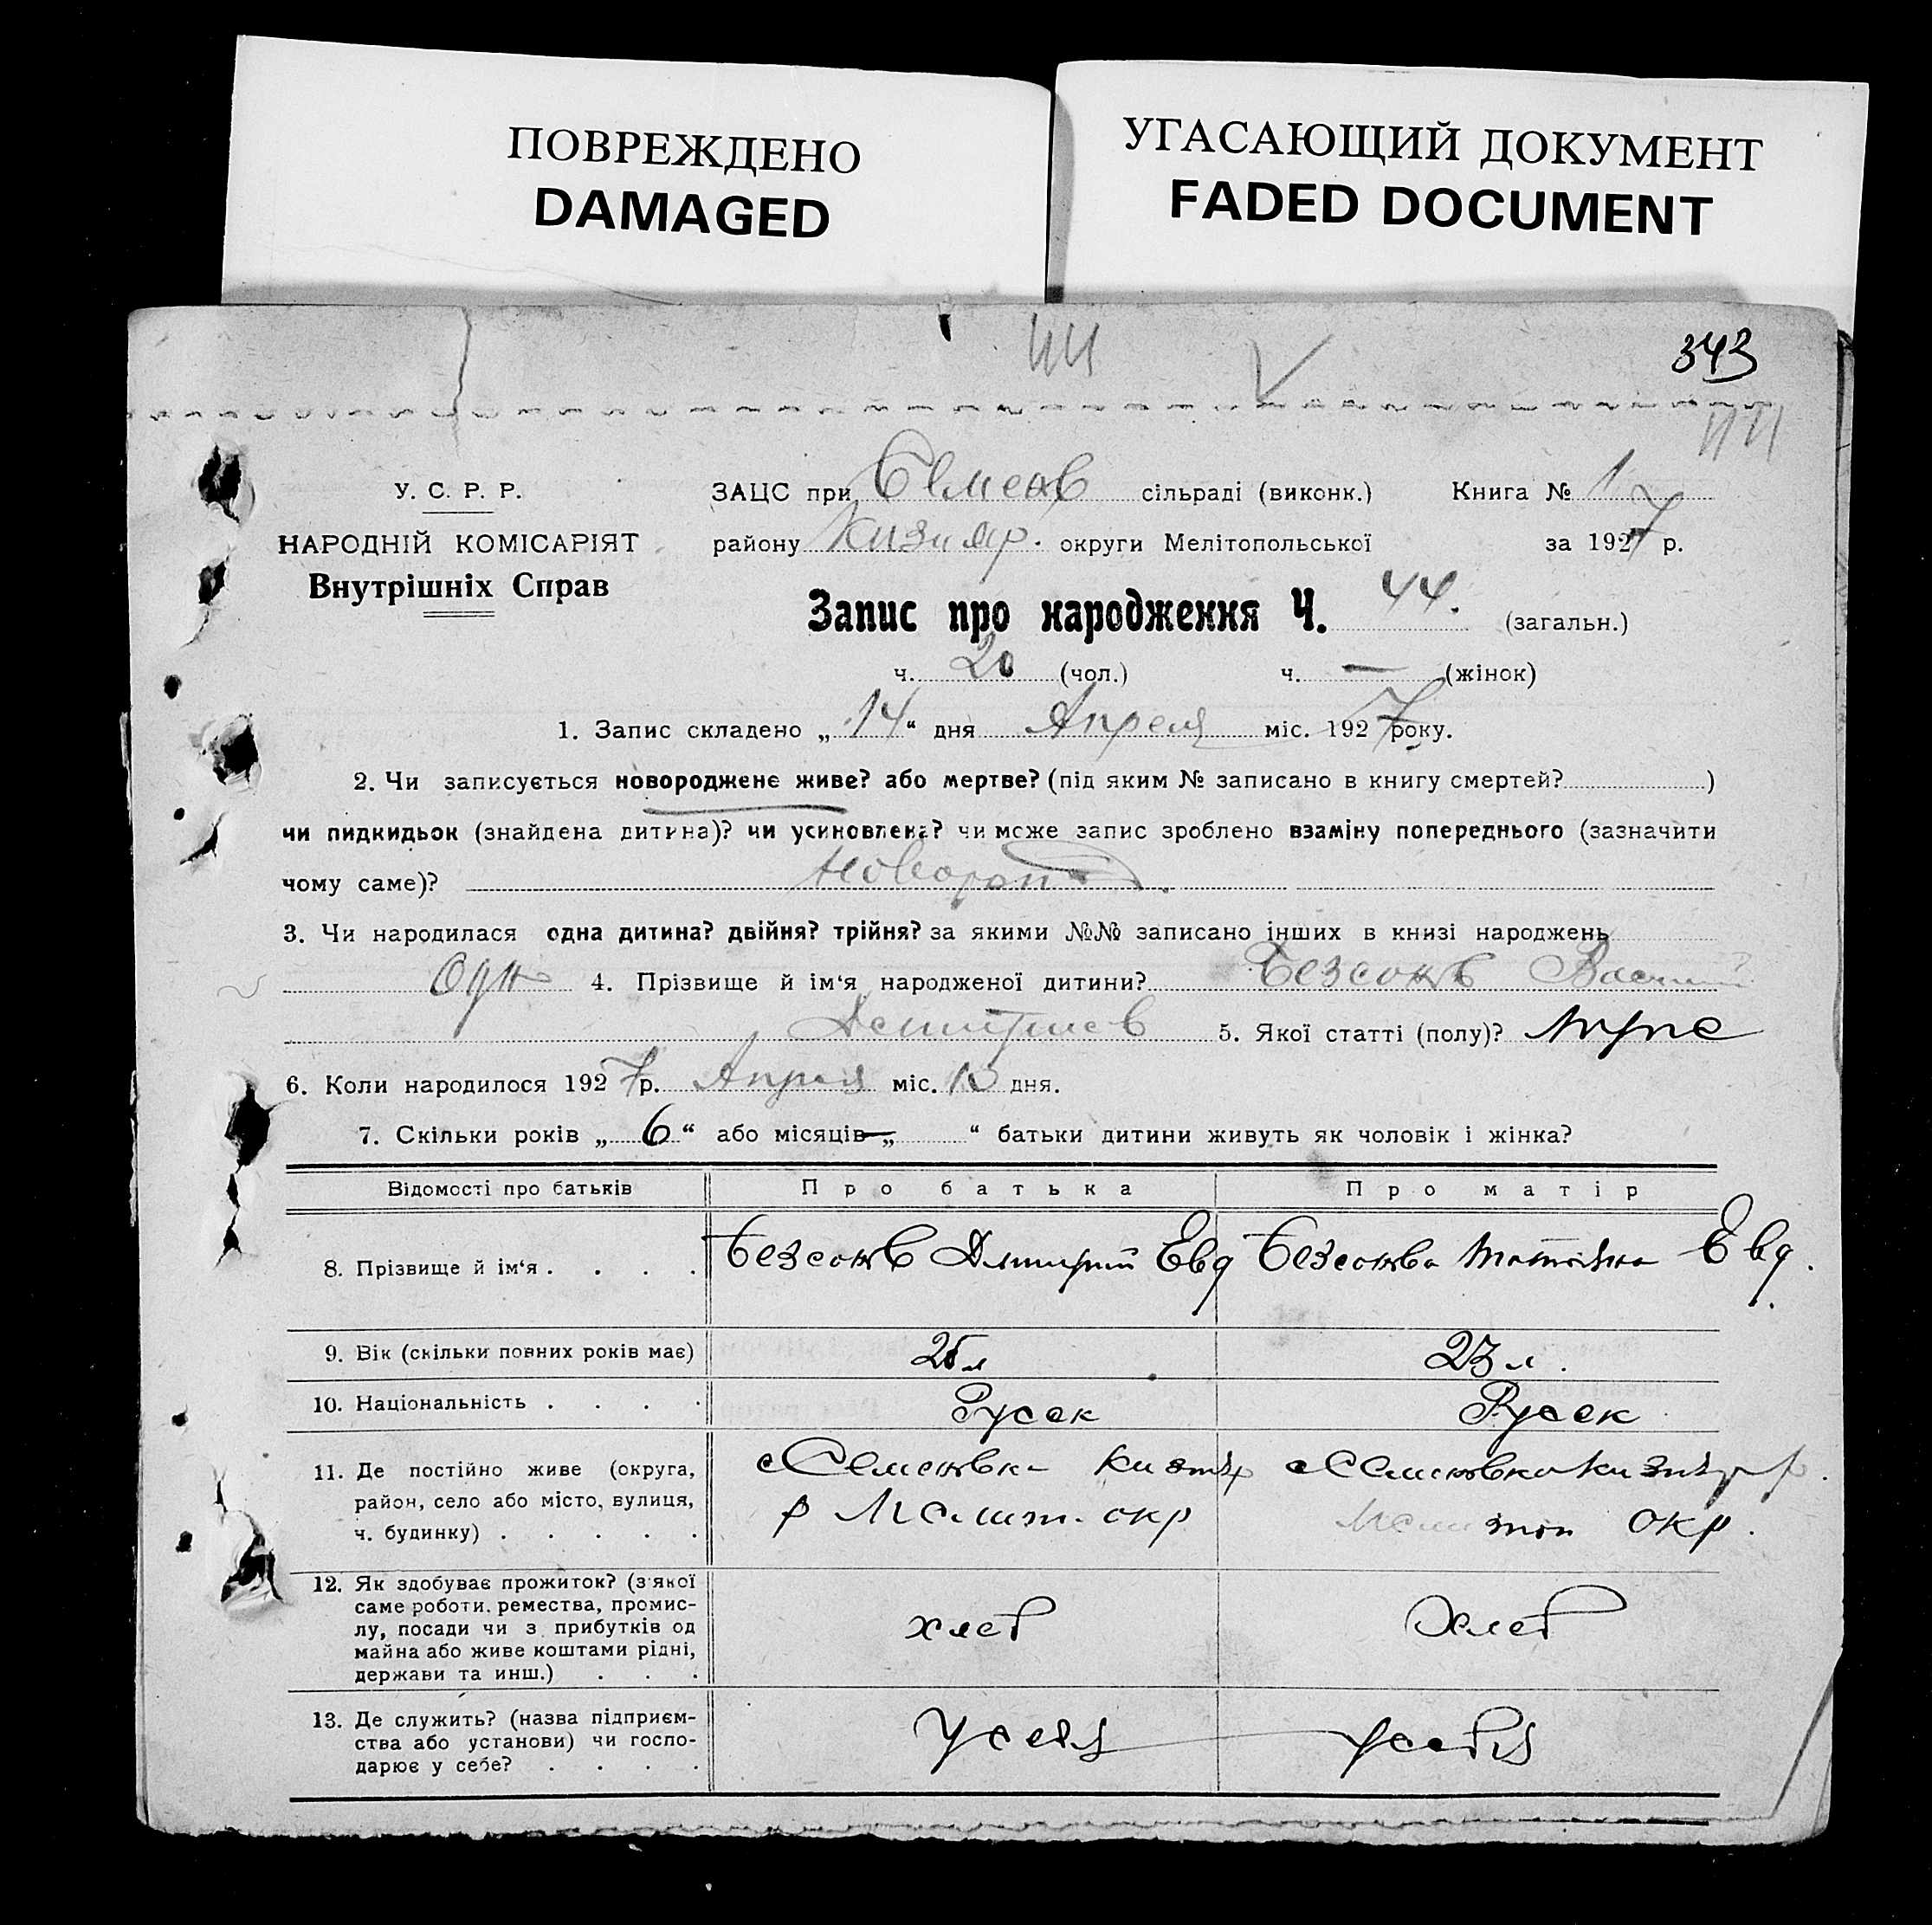 ПОВРЕЖДЕНО
DAMAGED
УГАСАЮЩИЙ ДОКУМЕНТ
FADED DOCUMENT
44
343
44
У. С. Р. Р.
НАРОДНІЙ КОМІСАРІЯТ
Внутрішніх Справ
ЗАЦС при Семенов сільраді (виконк.) Книга № 1
району Кизияр. округи Мелітопольської за 1927 р.
Запис про народження Ч. 44. (загальн.)
ч. 20 (чол.) ч. — (жінок)
1. Запис складено „ 14 “ дня Апреля міс. 1927 року.
2. Чи записується новороджене живе? або мертве? (під яким № записано в книгу смертей? )
чи пидкидьок (знайдена дитина)? чи усиновлена? чи може запис зроблено взаміну попереднього (зазначити
чому саме)?
3. Чи народилася одна дитина? двійня? трійня? за якими №№ записано інших в книзі народжень
Одн 4. Прізвище й ім‘я народженої дитини? Безсонов Василий
Дмитриев 5. Якої статті (полу)? муж
6. Коли народилося 1927 р. Апреля міс. 13 дня.
7. Скільки років „ 6 “ або місяців — „ “ батьки дитини живуть як чоловік і жінка?
Відомості про батьків Про батька Про матір
8. Прізвище й ім‘я . . . . Безсонов Дмитрий Евд Безсонова Татьяна Евд.
9. Вік (скільки повних років має) 25 л 23 л.
10. Національність . . . . Русск Русск
11. Де постійно живе (округа,
район, село або місто, вулиця,
ч. будинку) . . . . .
с Семеновка Кизияр
р Мелит. окр
с Семеновка Кизияр р.
Мелитоп окр.
12. Як здобуває прожиток? (з якої
саме роботи, ремества, промис-
лу, посади чи з прибутків од
майна або живе коштами рідні,
держави та инш.) . . .
хлеб
хлеб
13. Де служить? (назва підприєм-
ства або установи) чи госпо-
дарює у себе? . . . .
у себя
у себя